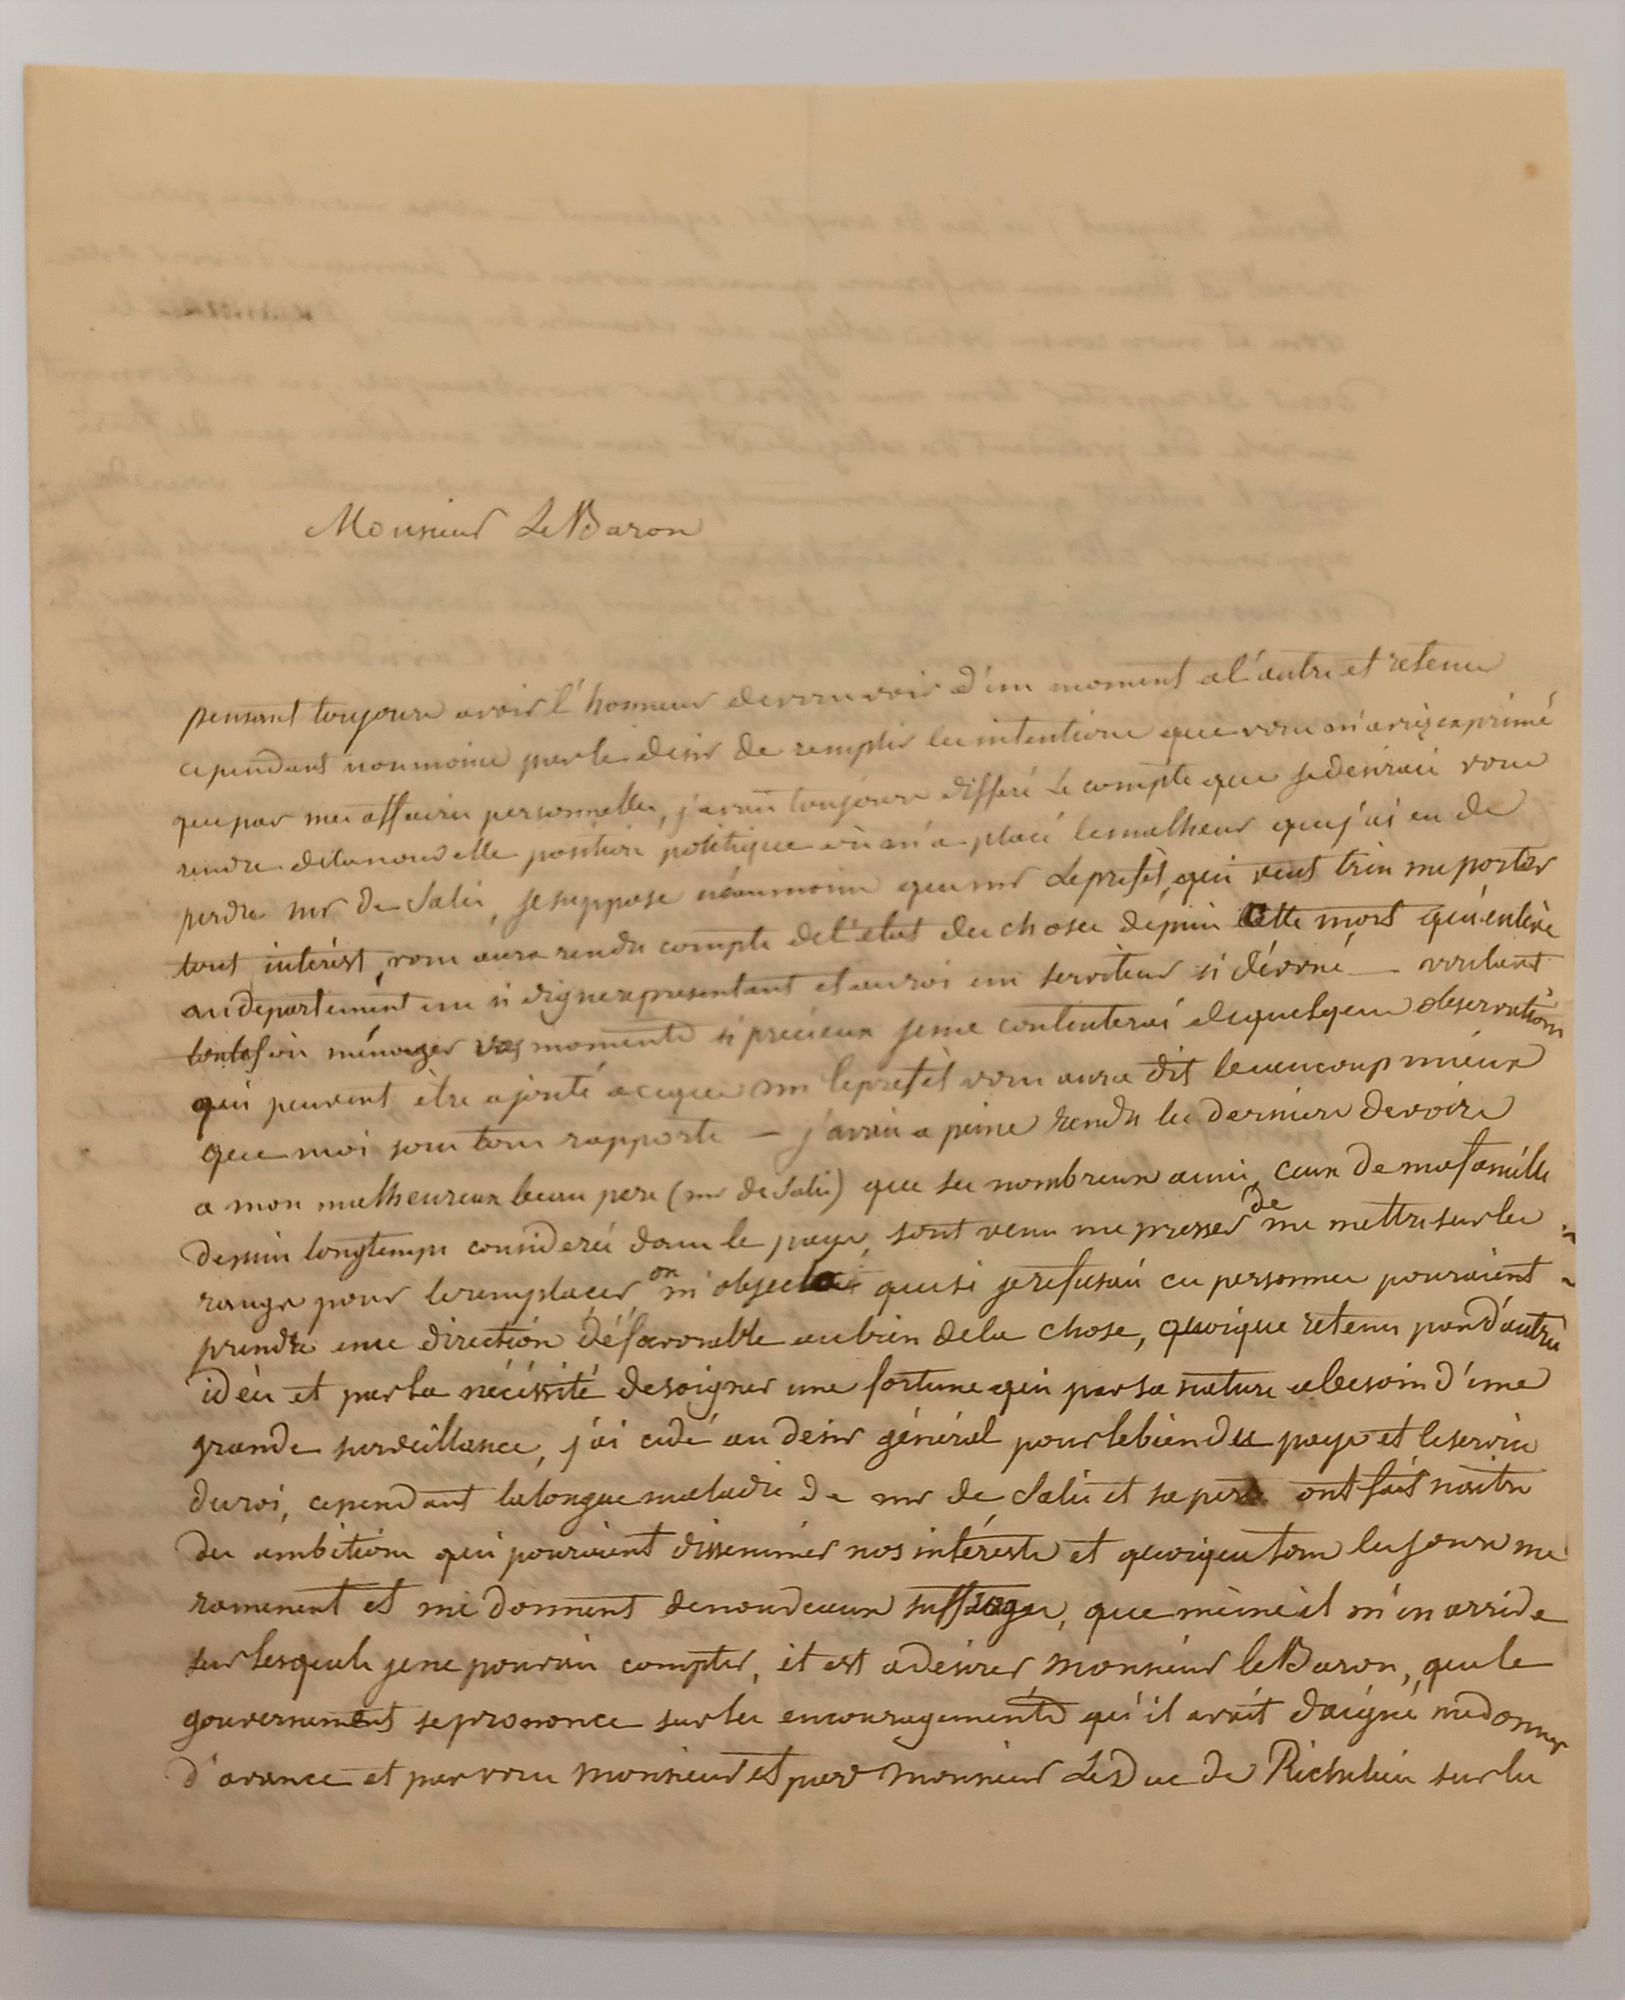 Monsieur Le Baron
pensant toujours avoir l'honneur de vous voir d'un moment a l'autre et retenu
cependant non moins par le desir de remplir les intentions que vous m'aviez exprimé
que par mes affaires personnelles, j'avais toujours différé le compte que je desirais vous
rendre de la nouvelle position politique où m'a placé le malheur que j'ai eu de
perdre mr de Salis, je suppose néanmoins que mr le prefet, qui veut bien me porter
tout intérest, vous aura rendu compte de l'état des choses depuis cette mort qui enlève
au departement un si digne representant et au roi un serviteur si dévoué — voulant
toutefois ménager vos moments si précieux je me contenterai de quelques observations
qui peuvent être ajouté a ce que mr le prefet vous aura dit beaucoup mieux
que moi sous tous rapports — j'avais a peine rendu les derniers devoirs
a mon malheureux beau pere (mr de Salis) que ses nombreux amis, ceux de ma famille
depuis longtemps considerés dans le pays, sont venu me presser de me mettre sur les
rangs pour le remplacer on m'objecta que si je refusais ces personnes pouraient
prendre une direction défavorable au bien de la chose, quoique retenu par d'autres
idées et par la nécéssité de soigner une fortune qui par sa nature a besoin d'une
grande surveillance, j'ai cédé au desir général pour le bien du pays et le service
du roi, cependant la longue maladie de mr de Salis et sa perte ont fait naitre
des ambitions qui pouraient disseminer nos intérests et quoique tous les jours me
ramenent et me donnent de nouveaux suffrages, que même il m'en arrive
sur lesquels je ne pouvais compter, il est a desirer, monsieur le Baron, que le
gouvernement se prononce sur les encouragements qu'il avait daigné me donner
d'avance et par vous monsieur et par monsieur Le Duc de Richelieu sur les